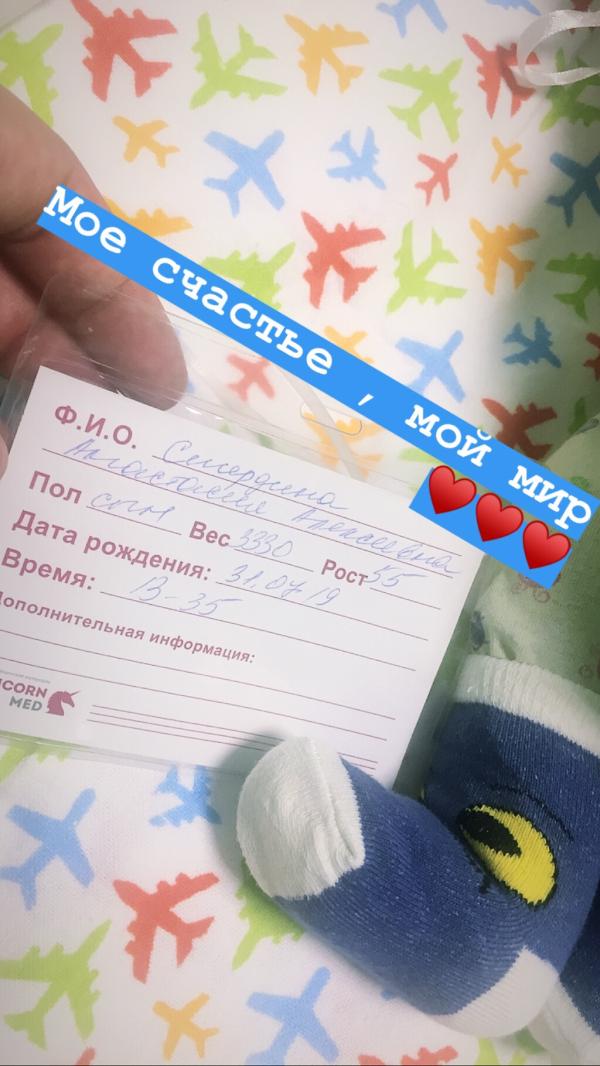 Мое счастье , мой мир
Ф.И.О.
Анастасия Алексеевна
Пол сын Вес 3330 Рост 55
Дата рождения: 31.07.19
Время: 13-35
Дополнительная информация:
MED